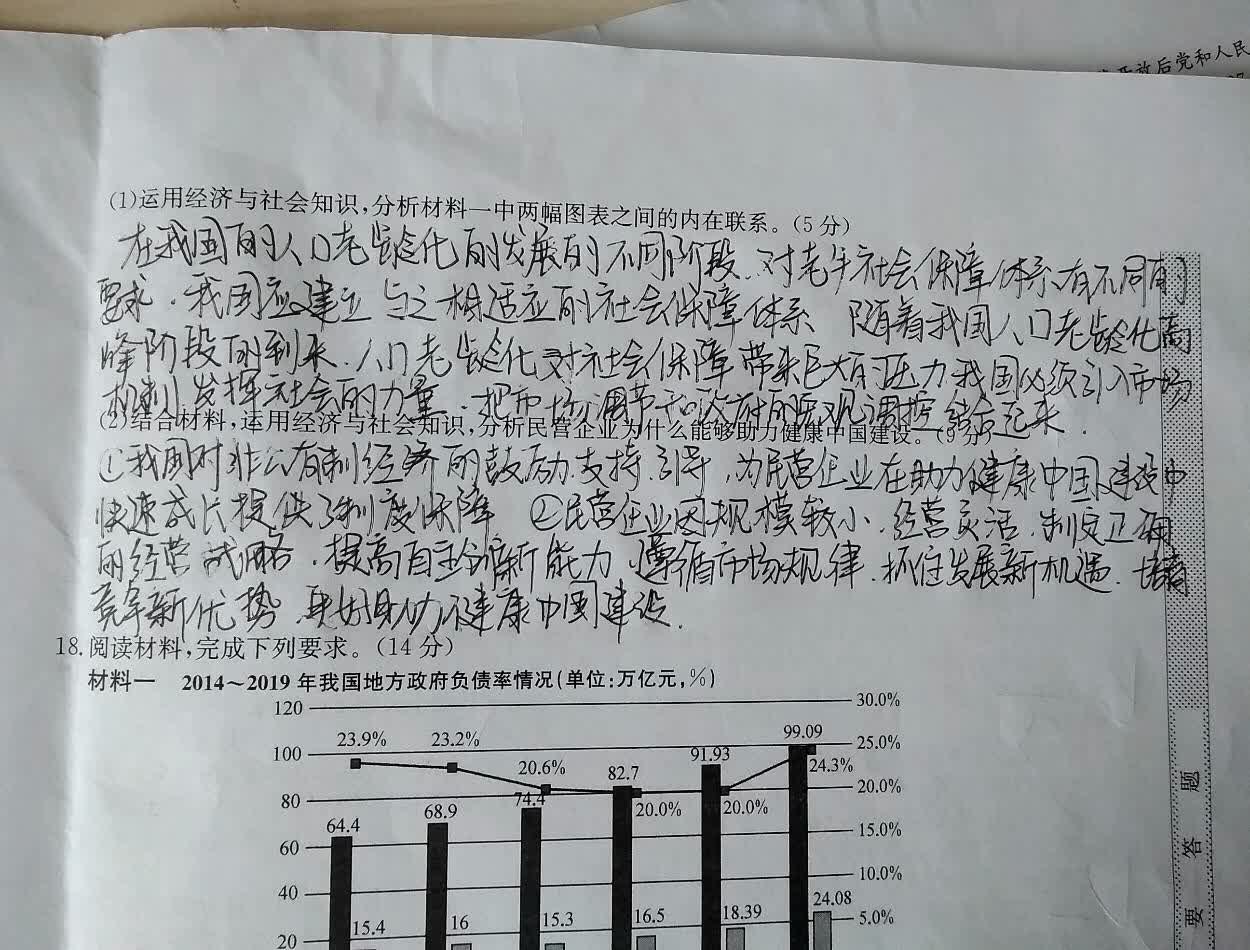 放后党和人民
(1)运用经济与社会知识,分析材料一中两幅图表之间的内在联系。(5分)
在我国的人口老龄化的发展的不同阶段、对老年社会保障体系有不同的
要求.我国应建立与之相适应的社会保障体系 随着我国人口老龄化高
峰阶段的到来.人口老龄化对社会保障带来巨大的压力.我国必须引入市场
机制,发挥社会的力量.把市场调节和政府的宏观调控结合起来.
(2)结合材料,运用经济与社会知识,分析民营企业为什么能够助力健康中国建设。(9分)
①我国对非公有制经济的鼓励.支持.引导,为民营企业在助力健康中国建设中
快速成长提供了制度保障 ②民营企业因规模较小.经营灵活.制定正确
的经营战略.提高自主创新能力.遵循市场规律.抓住发展新机遇.培育
竞争新优势.更好助力健康中国建设.
18.阅读材料,完成下列要求。(14分)
材料一 2014~2019年我国地方政府负债率情况(单位:万亿元,%)
120 30.0%
100 23.9% 23.2% 20.6% 82.7 91.93 99.09 25.0%
24.3%
80 64.4 68.9 74.4 20.0% 20.0% 20.0%
60 15.0%
40 10.0%
20 15.4 16 15.3 16.5 18.39 24.08 5.0%
题
答
要